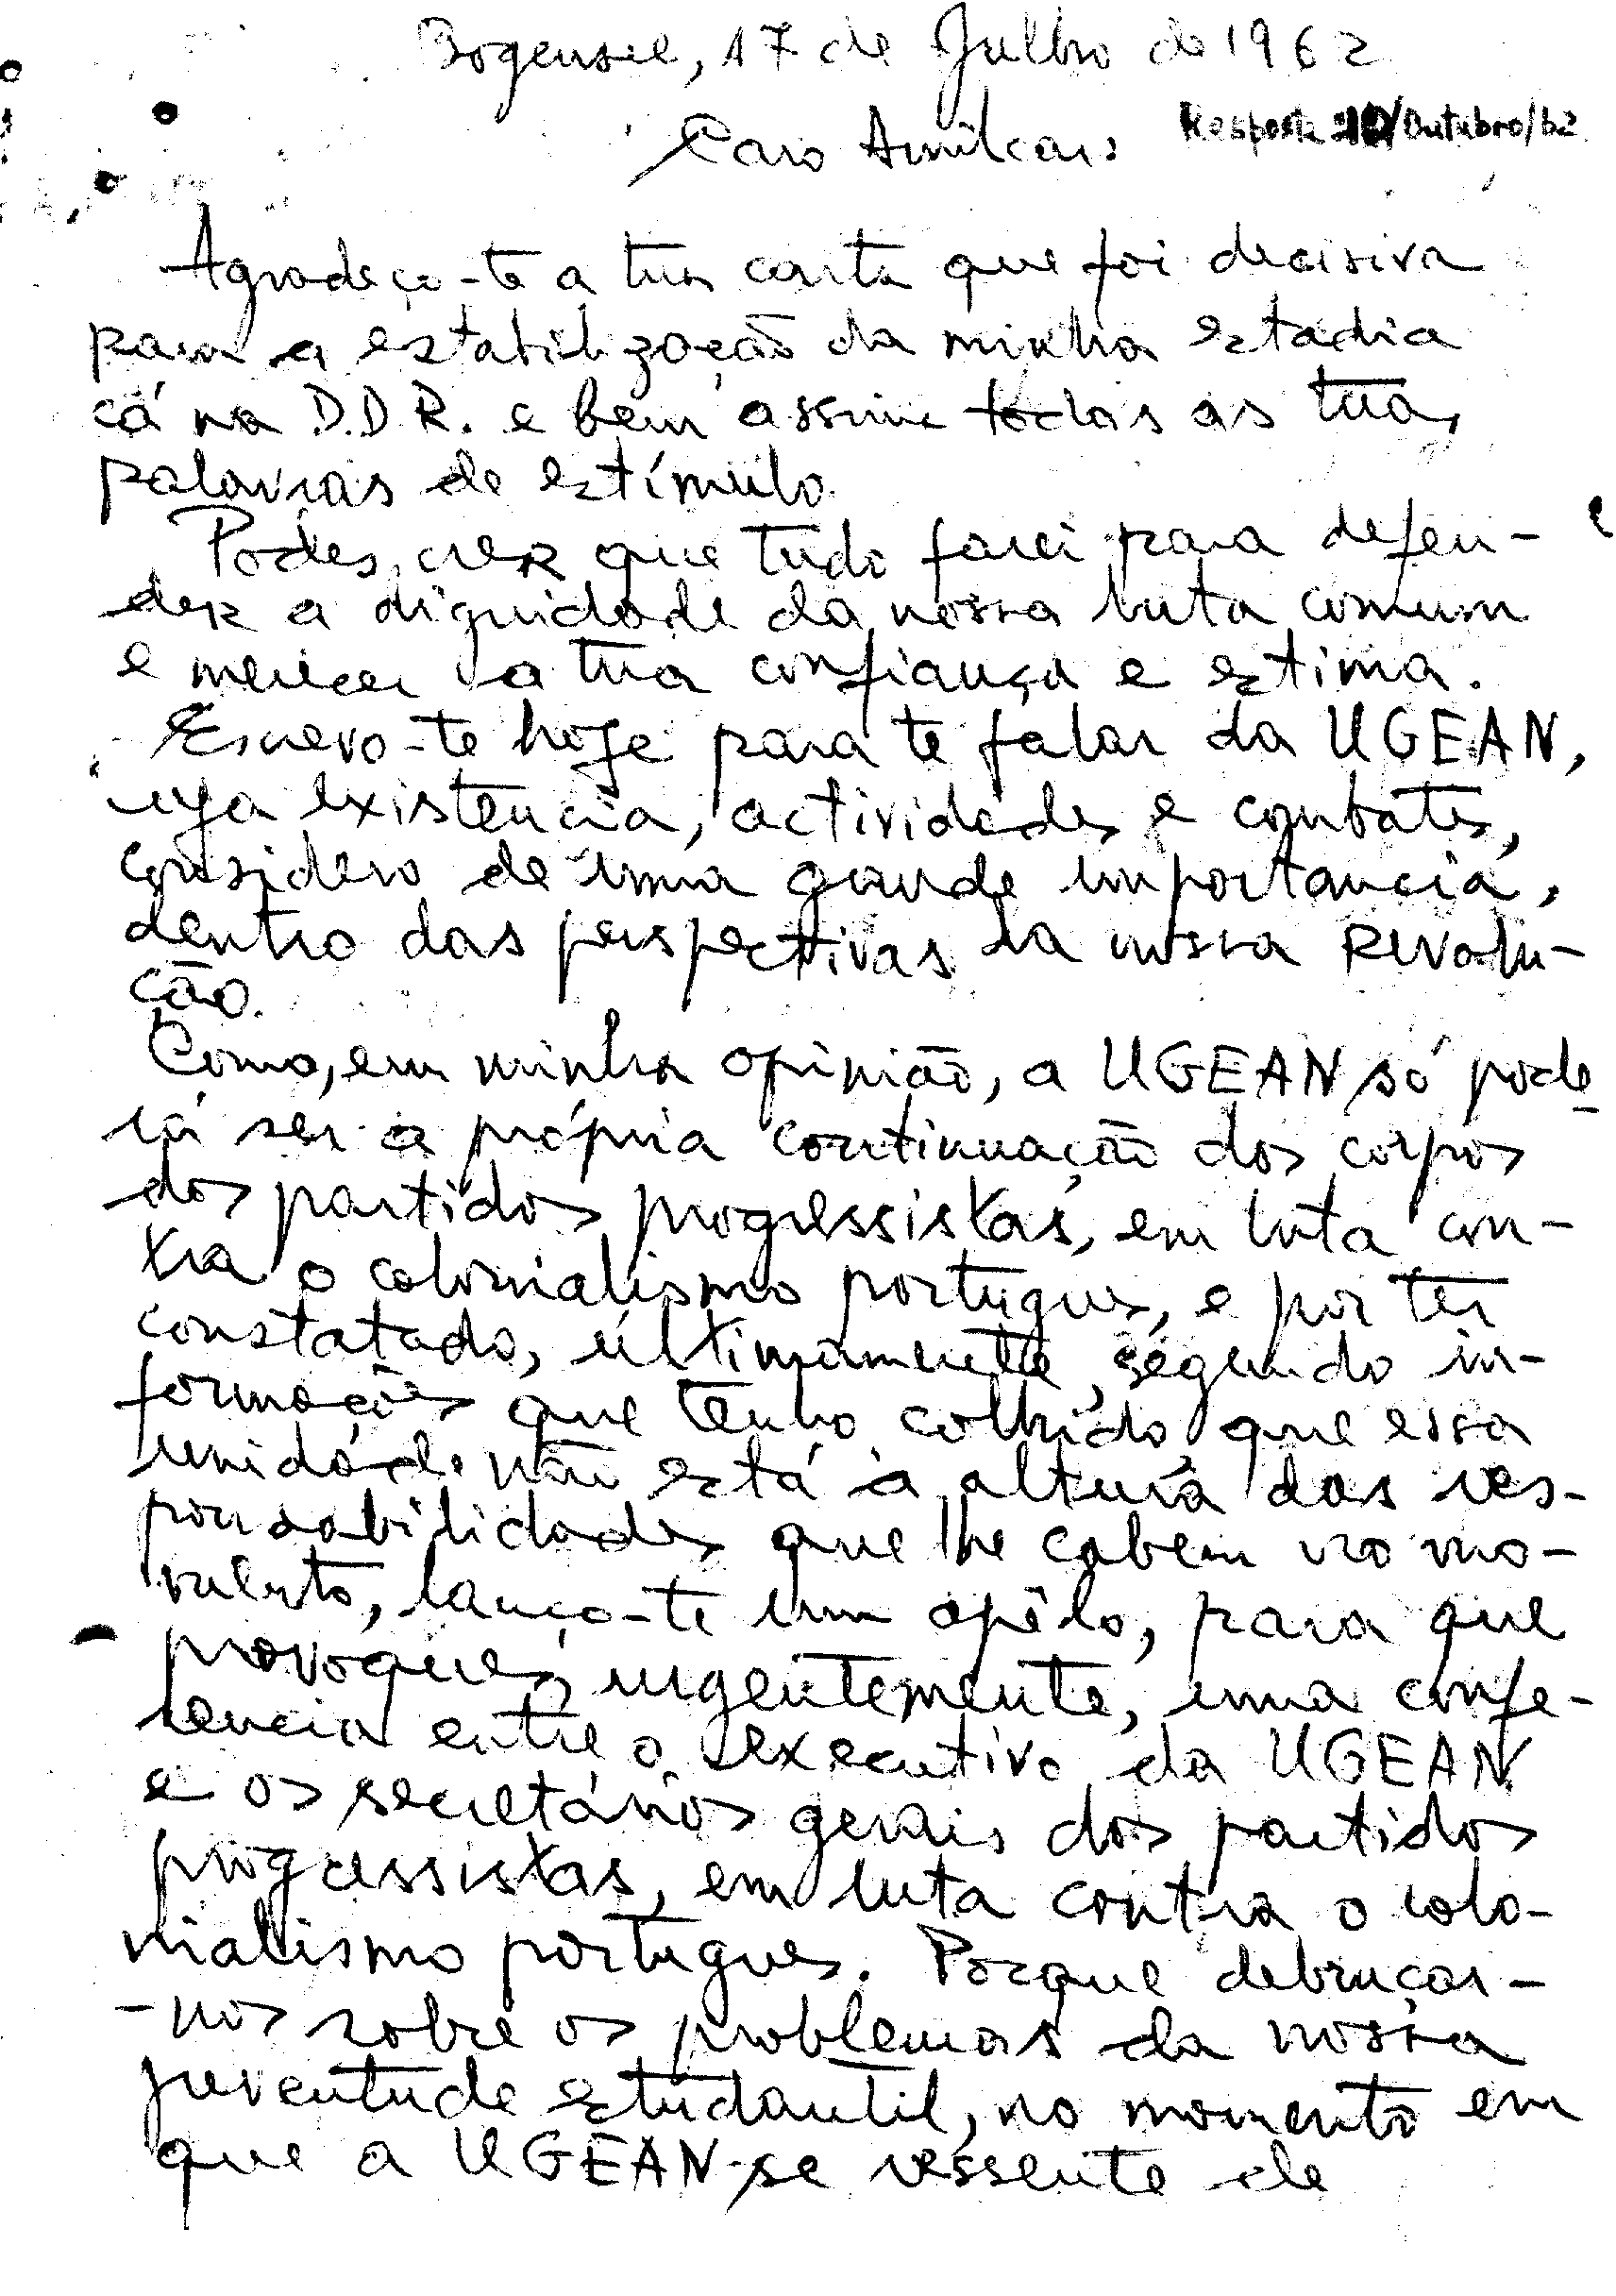 Bogensee, 17 de Julho de 1962
Caro Amílcar:
Resposta 10/Outubro/62
Agradeço-te a tua carta que foi decisiva
para a estabilização da minha estadia
cá na D.D.R. e bem assim todas as tuas
palavras de estímulo.
Podes crer que tudo farei para defen-
der a dignidade da nossa luta comum
e merecer a tua confiança e estima.
Escrevo-te hoje para te falar da UGEAN,
cuja existência, actividades e combates,
considero de uma grande importancia,
dentro das perspectivas da nossa Revolu-
ção.
Como, em minha opinião, a UGEAN só pode
rá ser a própria continuação dos corpos
dos partidos progressistas, em luta con-
tra o colonialismo portugues, e por ter
constatado, últimamente, segundo in-
formações que tenho colhido, que essa
unidade não está à altura das res-
ponsabilidades que lhe cabem no mo-
mento, lanço-te um apêlo, para que
provoques, urgentemente, uma confe-
rencia entre o executivo da UGEAN
e os secretários gerais dos partidos
progressistas, em luta contra o colo-
nialismo portugues. Porque debruçar-
-nos sobre os problemas da nossa
juventude estudantil, no momento em
que a UGEAN se ressente de